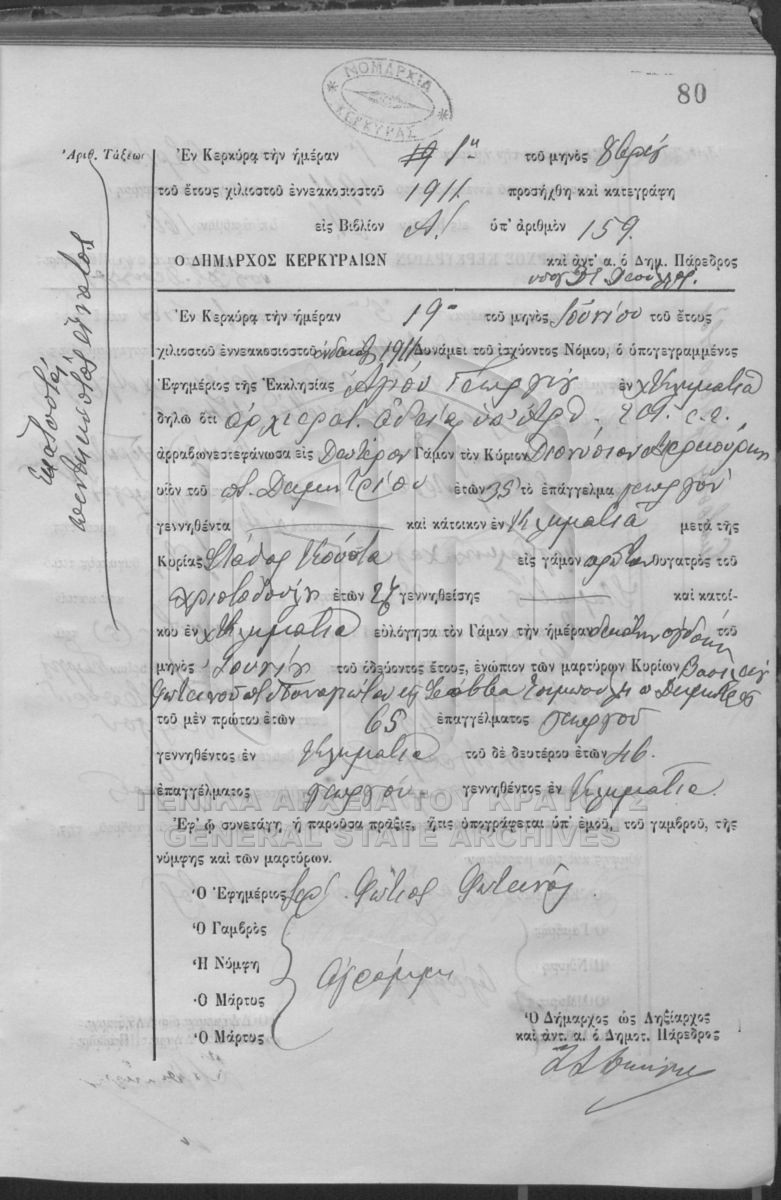 ΝΟΜΑΡΧΙΑ
ΚΕΡΚΥΡΑΣ
80
Ἀριθ. Τάξεως
Ἑκατοστὸς πεντηκοστὸς ἔννατος
Ἐν Κερκύρᾳ τὴν ἡμέραν 1ην τοῦ μηνὸς 8βρίου
τοῦ ἔτους χιλιοστοῦ ἐννεακοσιοστοῦ 1911. προσήχθη καὶ κατεγράφη
εἰς Βιβλίον Α. ὑπ' ἀριθμὸν 159.
Ο ΔΗΜΑΡΧΟΣ ΚΕΡΚΥΡΑΙΩΝ καὶ ἀντ' α. ὁ Δημ. Πάρεδρος
Ἐν Κερκύρᾳ τὴν ἡμέραν 19 τοῦ μηνὸς Ἰουνίου τοῦ ἔτους
χιλιοστοῦ ἐννεακοσιοστοῦ ἑνδεκάτου 1911 Δυνάμει τοῦ ἰσχύοντος Νόμου, ὁ ὑπογεγραμμένος
Ἐφημέριος τῆς Ἐκκλησίας Ἁγίου Γεωργίου ἐν Κληματιᾷ
δηλῶ ὅτι ἀρχιερατ. ἀδείᾳ ὑπ' ἀρθ. 209. ε.ἔ.
ἀρραβωνεστεφάνωσα εἰς Δεύτερον Γάμον τὸν Κύριον Διονύσιον Μερκούρη
υἱὸν τοῦ π. Δημητρίου ἐτῶν 35 τὸ ἐπάγγελμα γεωργοῦ
γεννηθέντα καὶ κάτοικον ἐν Κληματιᾷ μετὰ τῆς
Κυρίας Στάθως Κούστα εἰς γάμον πρῶτον θυγατρὸς τοῦ
Χριστοδούλου ἐτῶν 27 γεννηθείσης καὶ κατοί-
κου ἐν Κληματιᾷ εὐλόγησα τὸν Γάμον τὴν ἡμέραν δεκάτην ὀγδόην τοῦ
μηνὸς Ἰουνίου τοῦ ὁδεύοντος ἔτους, ἐνώπιον τῶν μαρτύρων Κυρίων Βασιλείου
Φωτεινοῦ Σάββα Δημητρίου
τοῦ μὲν πρώτου ἐτῶν 65 ἐπαγγέλματος γεωργοῦ
γεννηθέντος ἐν Κληματιᾷ τοῦ δὲ δευτέρου ἐτῶν 46.
ἐπαγγέλματος γεωργοῦ γεννηθέντος ἐν Κληματιᾷ.
ΓΕΝΙΚΑ ΑΡΧΕΙΑ ΤΟΥ ΚΡΑΤΟΥΣ
Ἐφ' ᾧ συνετάγη ἡ παροῦσα πρᾶξις, ἥτις ὑπογράφεται ὑπ' ἐμοῦ, τοῦ γαμβροῦ, τῆς
GENERAL STATE ARCHIVES
νύμφης καὶ τῶν μαρτύρων.
Ὁ Ἐφημέριος ἱερ. Φώτιος Φωτεινός.
Ὁ Γαμβρὸς
Ἡ Νύμφη
ἀγράμματοι
Ὁ Μάρτυς
Ὁ Μάρτυς
Ὁ Δήμαρχος ὡς Ληξίαρχος
καὶ ἀντ. α. ὁ Δημοτ. Πάρεδρος